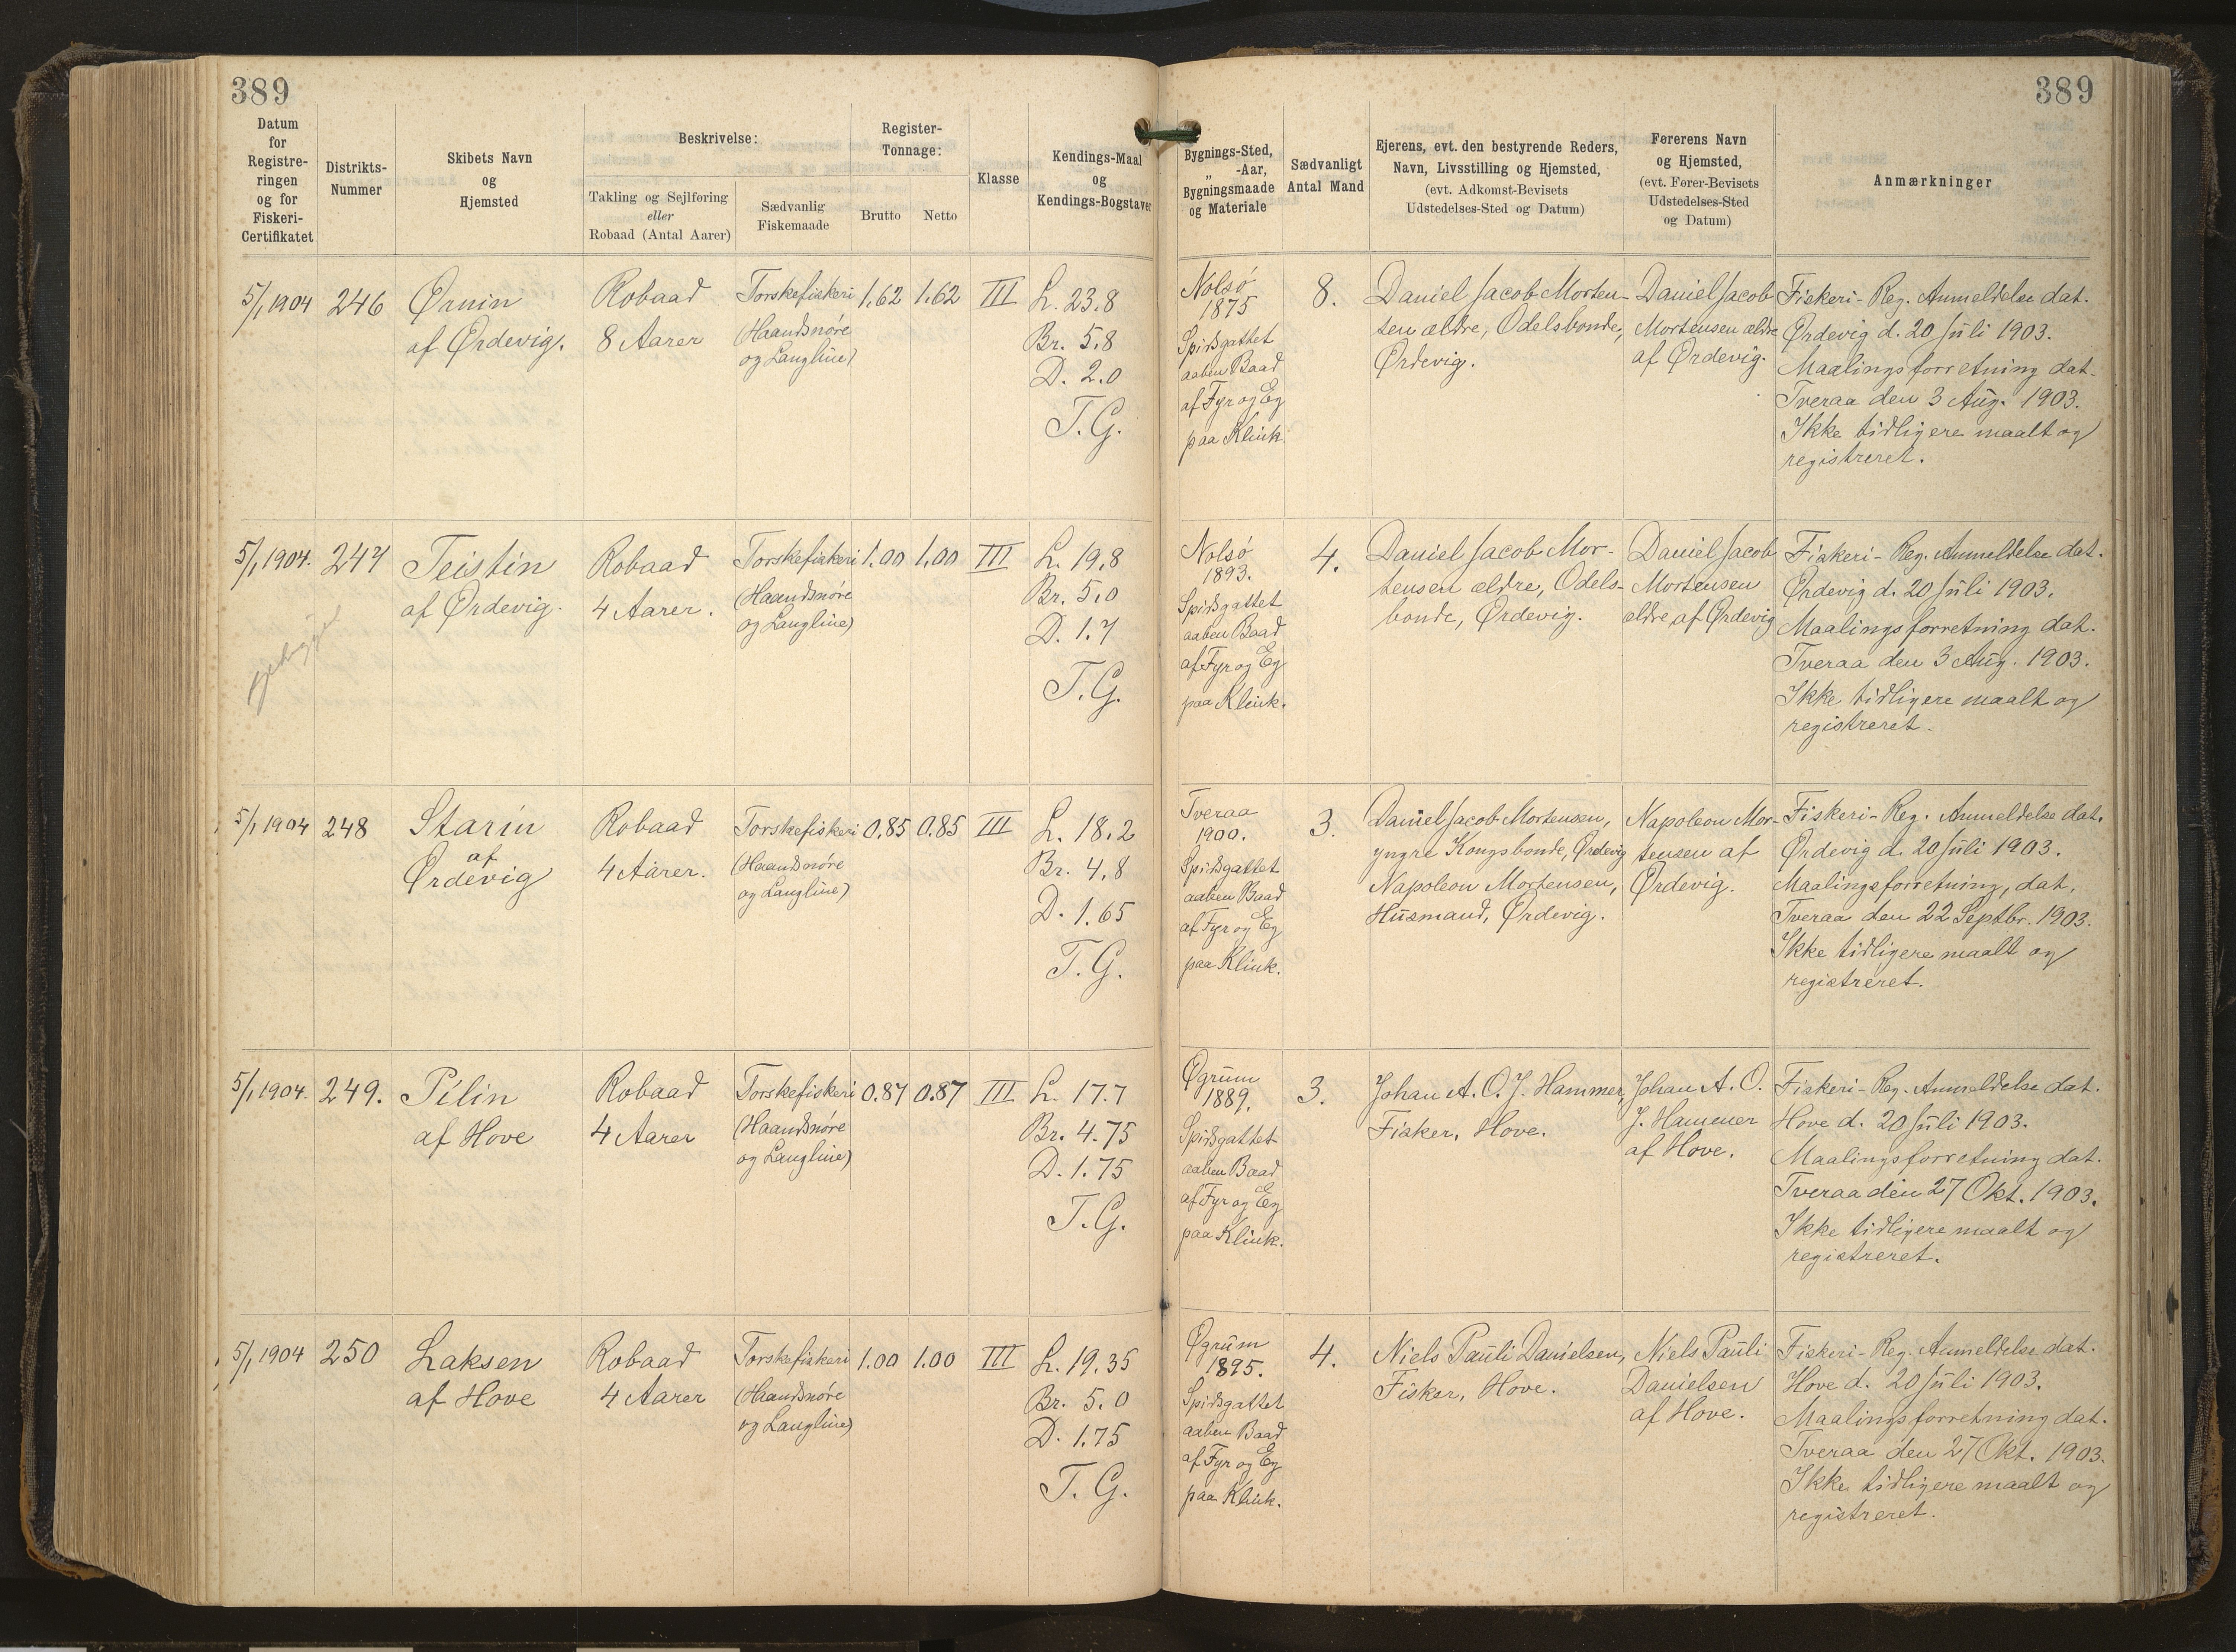 389
389
Datum
for
Registre-
ringen
og for
Fiskeri-
Certifikatet
Distrikts-
Nummer
Skibets Navn
og
Hjemsted
Beskrivelse:
Takling og Sejlføring
eller
Robaad (Antal Aarer)
Sædvanlig
Fiskemaade
Register-
Tonnage:
Brutto
Netto
Klasse
Kendings-Maal
og
Kendings-Bogstaver
Bygnings-Sted,
„ -Aar,
Bygningsmaade
og Materiale
Sædvanligt
Antal Mand
Ejerens, evt. den bestyrende Reders,
Navn, Livsstilling og Hjemsted,
(evt. Adkomst-Bevisets
Udstedelses-Sted og Datum)
Førerens Navn
og Hjemsted,
(evt. Fører-Bevisets
Udstedelses-Sted
og Datum)
Anmærkninger
5/1 1904
246
Ørnin
af Ørdevig.
Robaad
8 Aarer
Torskefiskeri
(Haandsnøre
og Langline)
1.62
1.62
III
L. 23.8
Br. 5.8
D. 2.0
T.G.
Nolsø
1875
Spidsgattet
aaben Baad
af Fyr og Eg
paa Klink.
8.
Daniel Jacob Morten-
sen ældre, Odelsbonde,
Ørdevig.
Daniel Jacob
Mortensen ældre
af Ørdevig.
Fiskeri-Reg. Anmeldelse dat.
Ørdevig d. 20 Juli 1903.
Maalingsforretning dat.
Tveraa den 3 Aug. 1903.
Ikke tidligere maalt og
registreret.
5/1 1904.
247
Teistin
af Ørdevig.
Robaad
4 Aarer.
Torskefiskeri
(Haandsnøre
og Langline)
1.00
1.00
III
L. 19.8
Br. 5.0
D. 1.7
T.G.
Nolsø
1893.
Spidsgattet
aaben Baad
af Fyr og Eg
paa Klink.
4.
Daniel Jacob Mor-
tensen ældre, Odels-
bonde, Ørdevig.
Daniel Jacob
Mortensen
ældre af Ørdevig
Fiskeri-Reg. Anmeldelse dat.
Ørdevig d. 20 Juli 1903.
Maalingsforretning dat.
Tveraa den 3 Aug. 1903.
Ikke tidligere maalt og
registreret.
5/1 1904
248
Starin
af
Ørdevig
Robaad
4 Aarer.
Torskefiskeri
(Haandsnøre
og Langline)
0.85
0.85
III
L. 18.2
Br. 4.8
D. 1.65
T.G.
Tveraa
1900.
Spidsgattet
aaben Baad
af Fyr og Eg
paa Klink.
3.
Daniel Jacob Mortensen,
yngre Kongsbonde, Ørdevig
Napoleon Mortensen,
Husmand, Ørdevig.
Napoleon Mor-
tensen af
Ørdevig.
Fiskeri-Reg. Anmeldelse dat.
Ørdevig d. 20 Juli 1903.
Maalingsforretning, dat.
Tveraa den 22 Septbr. 1903.
Ikke tidligere maalt og
registreret.
5/1 1904.
249.
Pilin
af Hove
Robaad
4 Aarer
Torskefiskeri
(Haandsnøre
og Langline)
0.87
0.87
III
L. 17.7
Br. 4.75
D. 1.75
T.G.
Øgrum
1889.
Spidsgattet
aaben Baad
af Fyr og Eg
paa Klink.
3.
Johan A. O. J. Hammer,
Fisker, Hove.
Johan A. O.
J. Hammer
af Hove.
Fiskeri-Reg. Anmeldelse dat.
Hove d. 20 Juli 1903.
Maalingsforretning dat.
Tveraa den 27 Okt. 1903.
Ikke tidligere maalt og
registreret.
5/1 1904
250
Laksen
af Hove
Robaad
4 Aarer
Torskefiskeri
(Haandsnøre
og Langline)
1.00
1.00
III
L. 19.35
Br. 5.0
D. 1.75
T.G.
Øgrum
1895.
Spidsgattet
aaben Baad
af Fyr og Eg
paa Klink.
4.
Niels Pauli Danielsen,
Fisker, Hove.
Niels Pauli
Danielsen
af Hove.
Fiskeri-Reg. Anmeldelse dat.
Hove d. 20 Juli 1903.
Maalingsforretning dat.
Tveraa den 27 Okt. 1903.
Ikke tidligere maalt og
registreret.